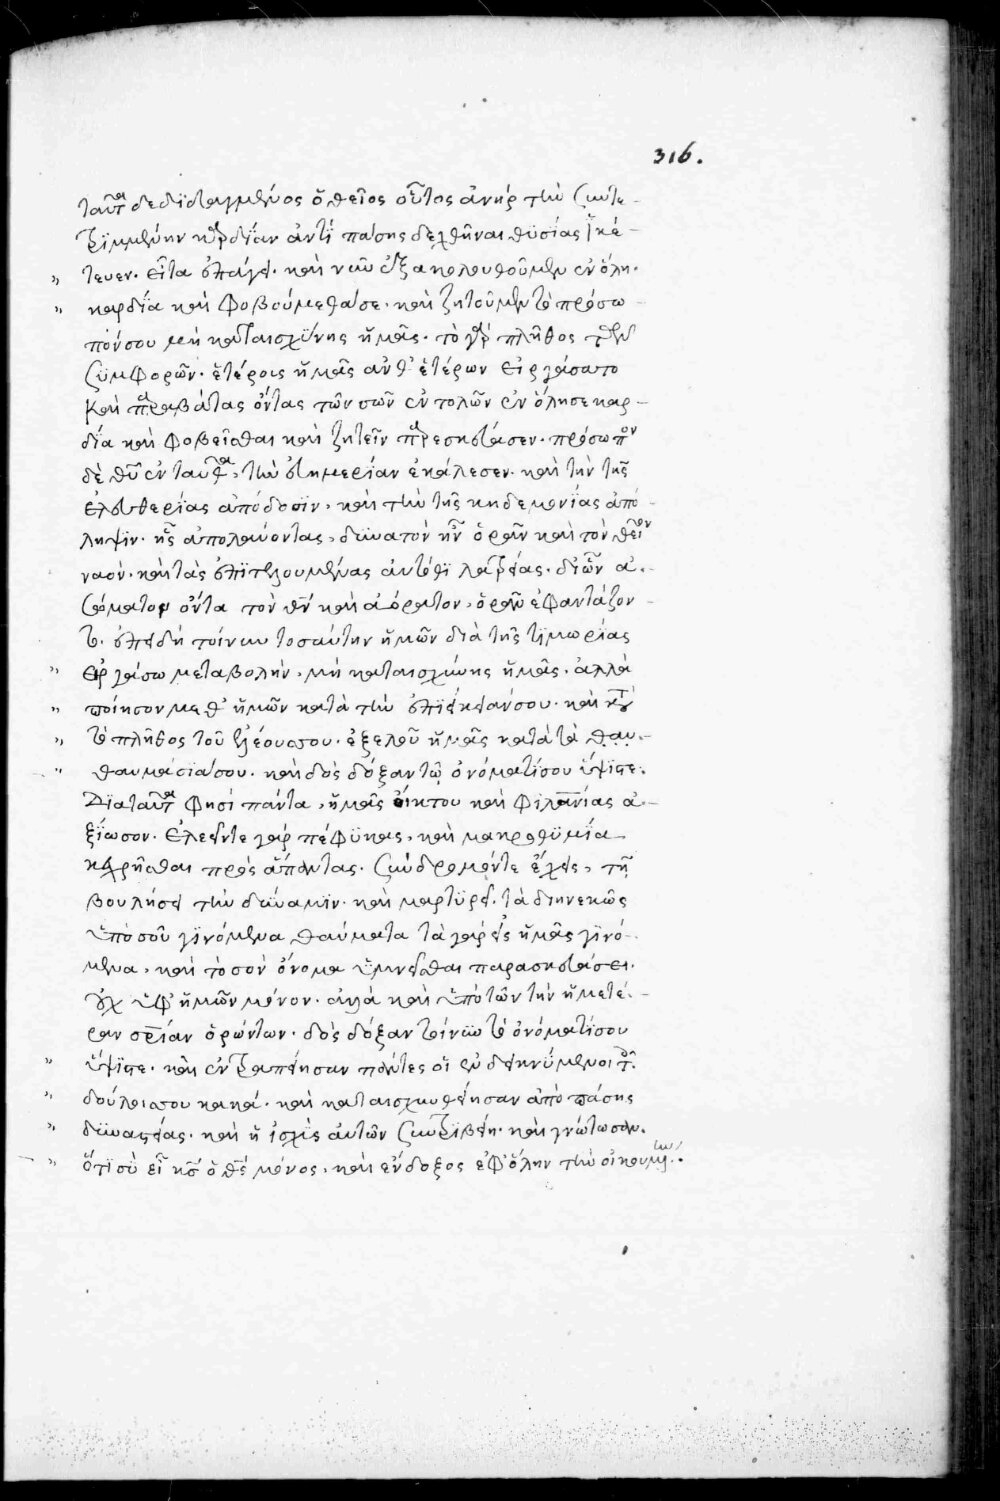 316.
ταῦτα δεδιδαγμένος ὁ θεῖος οὗτος ἀνήρ τὴν συντε-
τριμμένην καρδίαν ἀντί πάσης δεχθῆναι θϋσίας ἱκέ-
τευεν. εἶτα ἐπάγει. καὶ νῦν ἐξακολουθοῦμεν ἐν ὅλη.
καρδία καὶ φοβούμεθά σε. καὶ ζητοῦμεν τὸ πρόσω-
πόν σου μὴ καταισχύνης ἡμᾶς. τὸ γὰρ πλῆθος τῶν
ξϋμφορῶν. ἑτέροις ἡμᾶς ἀνθ' ἑτέρων εἰργάσατο
καὶ παραβάτας ὄντας τῶν σῶν ἐντολῶν ἐν ὅλη σε καρ-
δία καὶ φοβεῖσθαι καὶ ζητεῖν παρεσκεύασεν. πρόσωπον
δὲ θῦ ἐνταῦθα, τὴν εὐημερίαν ἐκάλεσεν. καὶ τὴν τῆς
ἐλευθερίας ἀπόδοσϊν, καὶ τὴν τῆς κηδεμονίας ἀπό-
ληψϊν. ἧς ἀπολαύοντας, δϋνατὸν ἦν ὁρᾶν καὶ τὸν θεῖον
ναὸν. καὶ τὰς ἐπϊτελουμένας αὐτόθϊ λατρείας. δι' ὧν ἀ-
σώματον ὄντα τὸν θν καὶ ἀόρατον, ὁρᾶν ἐφαντάζον-
το. ἐπειδή τοίνυν τοσαύτην ἡμῶν διὰ τῆς τϊμωρίας
εἰργάσω μεταβολὴν, μὴ καταισχύνης ἡμᾶς. ἀλλὰ
ποίησον μεθ' ἡμῶν κατὰ τὴν ἐπϊείκειάν σου. καὶ κατὰ
τὸ πλῆθος τοῦ ἐλέους σου. ἐξελοῦ ἡμᾶς κατὰ τὰ θαυ-
θαυμάσϊά σου. καὶ δὸς δόξαν τῶ ὀνόματί σου κύριε.
Διαταῦτα φησί πάντα, ἡμᾶς οἴκτου καὶ φϊλανίας ἀ-
ξίωσον. ἐλεεῖν τε γάρ πέφϋκας, καὶ μακροθϋμία
κεχρῆσθαι πρὸς ἅπαντας. σύνδρομόν τε ἔχεις, τῆ
βουλήσει τὴν δύναμϊν. καὶ μαρτϋρεῖ. τὰ διηνεκῶς
ὑπό σοῦ γϊνόμενα θαύματα τὰ γὰρ εἰς ἡμᾶς γϊνό-
μενα, καὶ τὸ σὸν ὄνομα ὑμνεῖσθαι παρασκευάσει.
οὐχ ὑφ' ἡμῶν μόνον. ἀλλὰ καὶ ὑπὸ τῶν τὴν ἡμετέ-
ραν σρίαν ὁρώντων. δὸς δόξαν τοίνυν τῶ ὀνόματί σου
κύριε. καὶ ἐντραπείησαν πάντες οἱ ἐνδεικνύμενοι τοῖς
δούλοις σου κακά. καὶ καταισχυνθείησαν ἀπὸ πάσης
δϋναστείας. καὶ ἡ ἰσχὺς αὐτῶν συντριβείη. καὶ γνώτωσαν.
ὅτι σὺ εἶ κς ὁ θς μόνος, καὶ ἔνδοξος ἐφ' ὅλην τὴν οἰκουμένην: